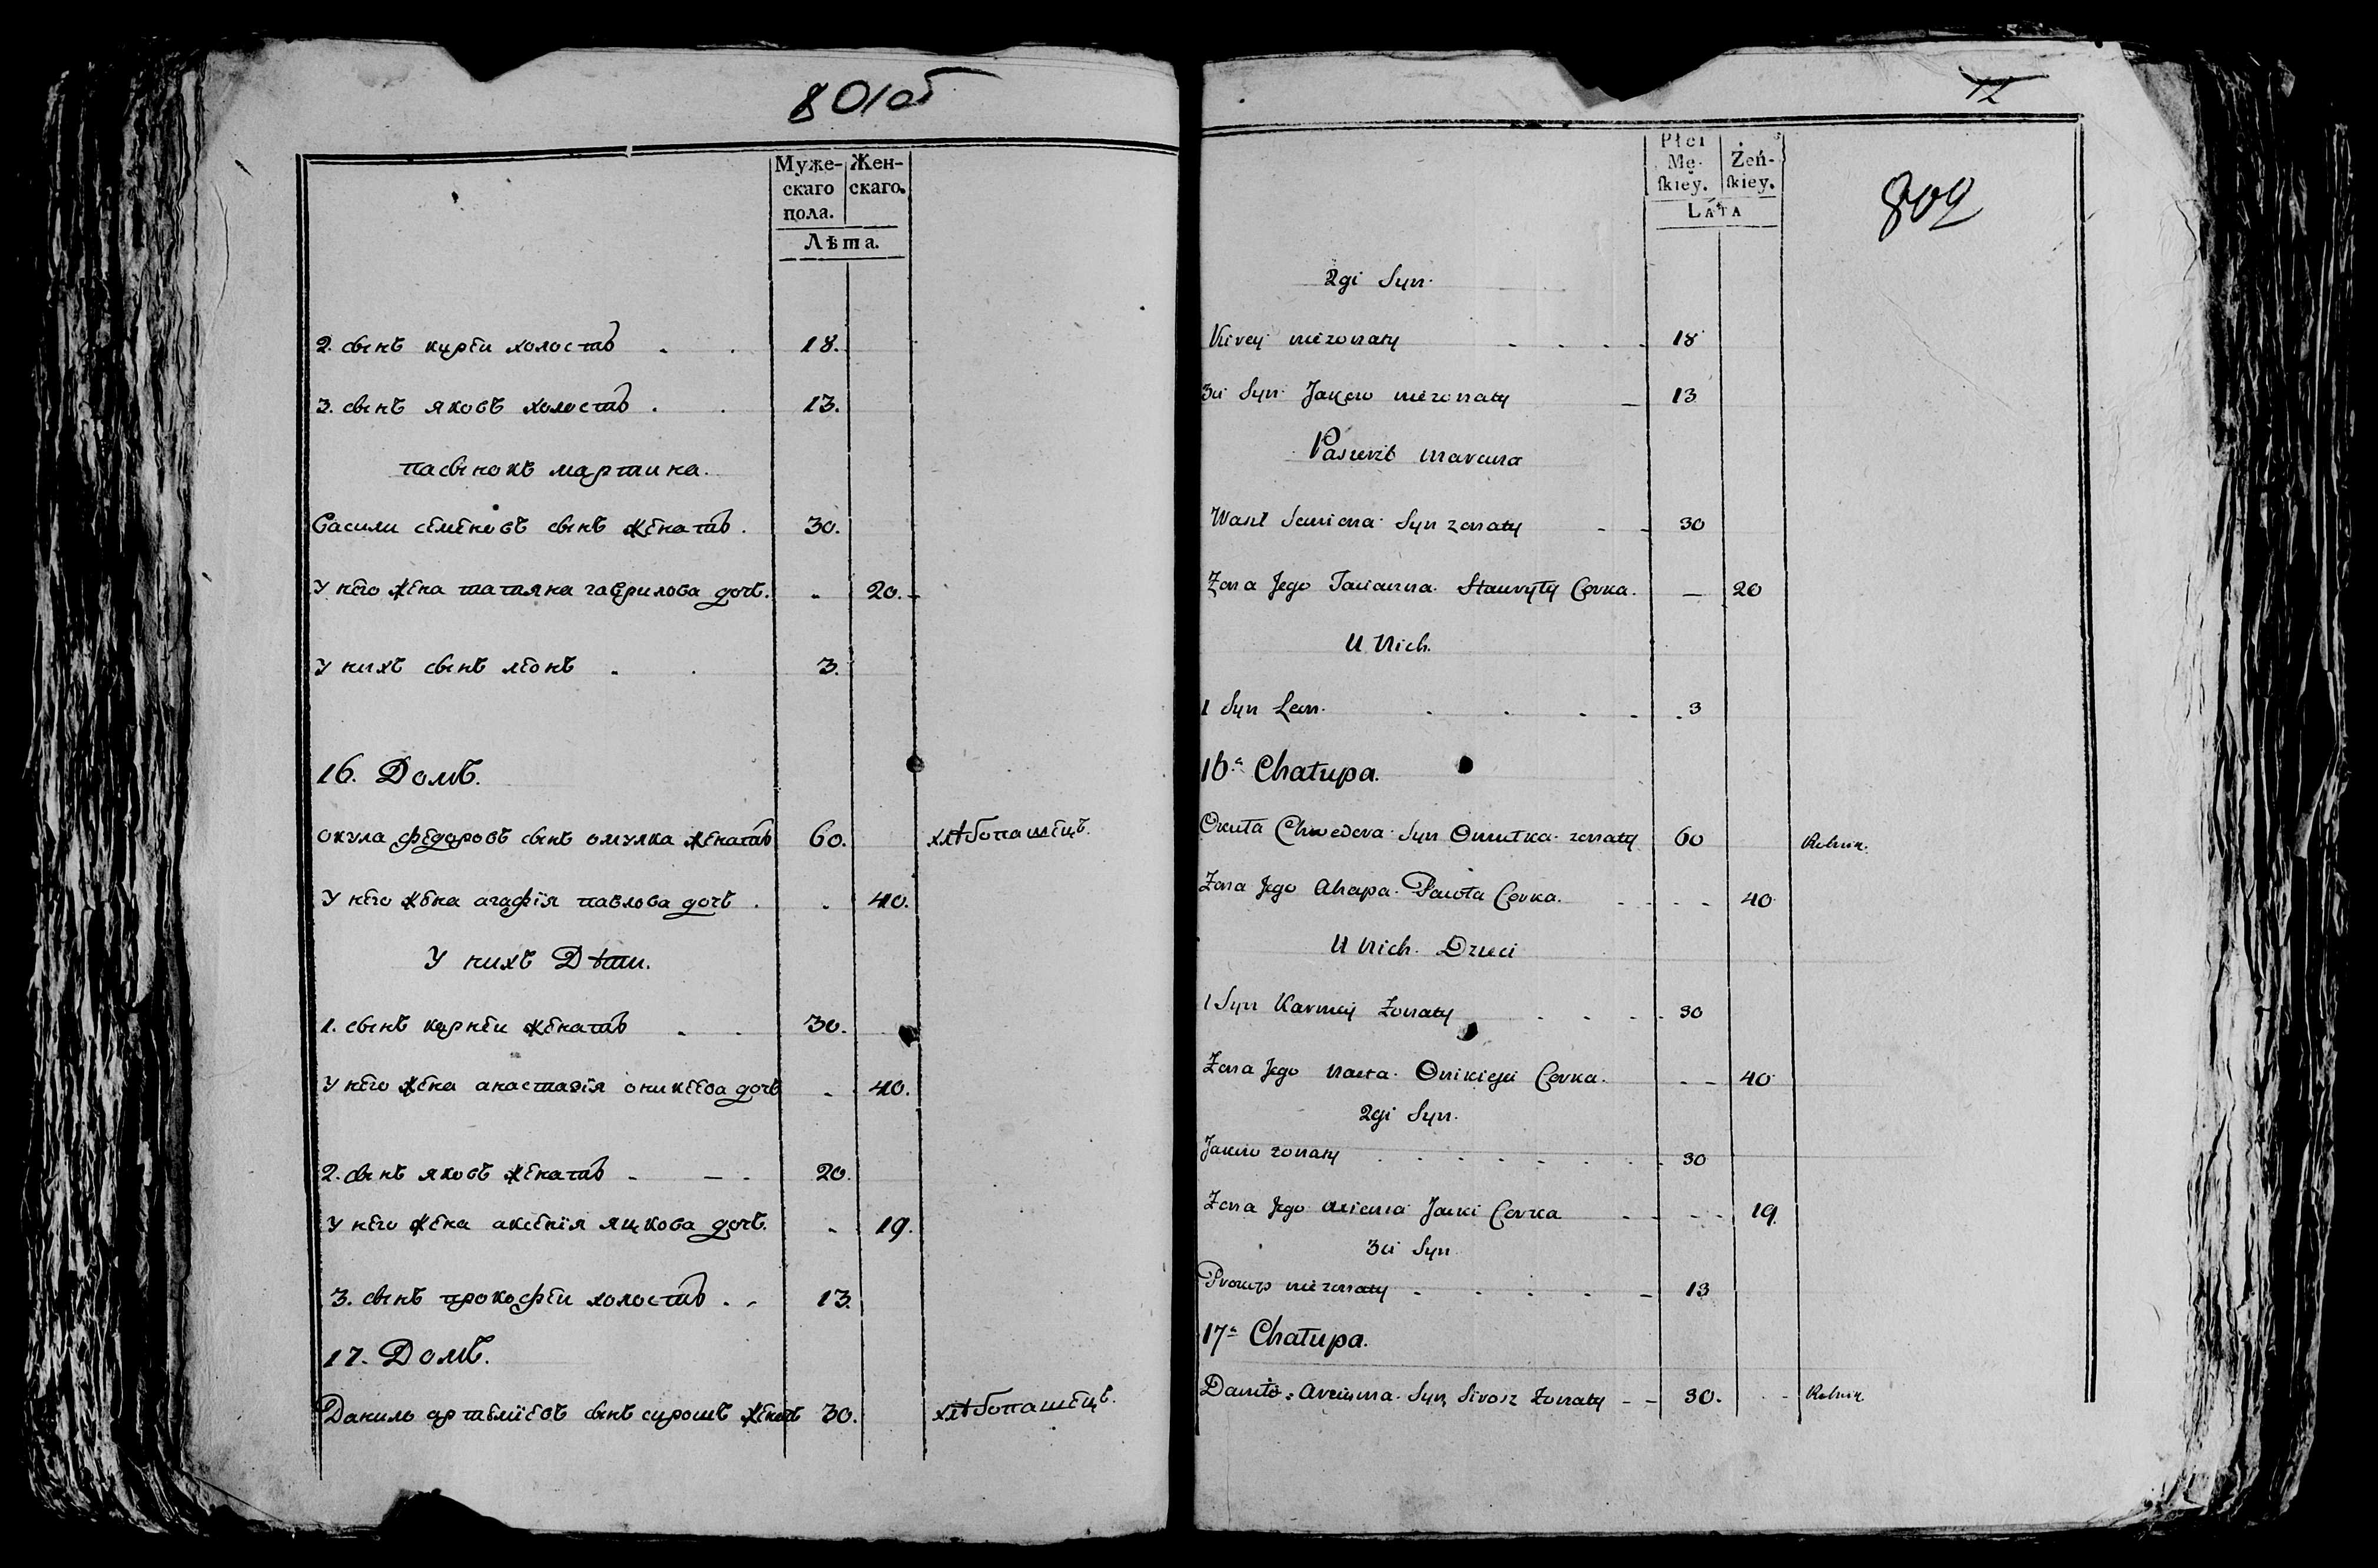 801об
Муже-
скаго
пола.
Жен-
скаго.
Лѣта.
2. сынъ кирѣи холостъ . . 18.
3. сынъ яковъ холостъ . . 13.
пасынокъ мартина.
Васили семеновъ сынъ женатъ . 30.
У него жена татяна гаврилова дочъ. - 20.
У нихъ сынъ леонъ . . 3.
16. Домъ.
окула федоровъ сынъ омулка женатъ 60. хлѣбопашецъ.
У него жена агафія павлова дочъ . - 40.
У нихъ Дѣти.
1. сынъ карнеи женатъ . . 30.
У него жена анастазія оникеева дочъ - 40.
2. сынъ яковъ женатъ - - - 20.
У него жена аксенія яцкова дочъ. - 19.
3. сынъ прокофеи холостъ . - 13.
17. Домъ.
Данило артемиевъ сынъ сирошъ женатъ 30. хлѣбопашецъ.
12
802
Płci
Mę-
skiey.
Żeń-
skiey.
LATA
2gi Syn.
Kirey niezonaty . . . . 18
3ci Syn Jakow niezonaty - 13
Pasierzb marcina
Wasil Semiona Syn zonaty - - 30
Zona Jego Tacianna Corka. - 20
U Nich.
1 Syn Leon. . . . . . 3
16a Chałupa.
Okuła Chwedora Syn Omułka zonaty 60 Rolnik.
Zona Jego Ahapa Pawła Corka. . . - - 40
U Nich Dzieci
1 Syn Karniey Zonaty . . . . 30
Zona Jego Nasta Onikieja Corka. - - 40
2gi Syn.
Jakow zonaty . . . . . . . . 30
Zona Jego Jacki Corka - - - 19.
3ci Syn
Prokop niezonaty - . . . - 13
17a Chałupa.
Daniło Arciuma Syn Sirosz Zonaty - - 30. - Rolnik